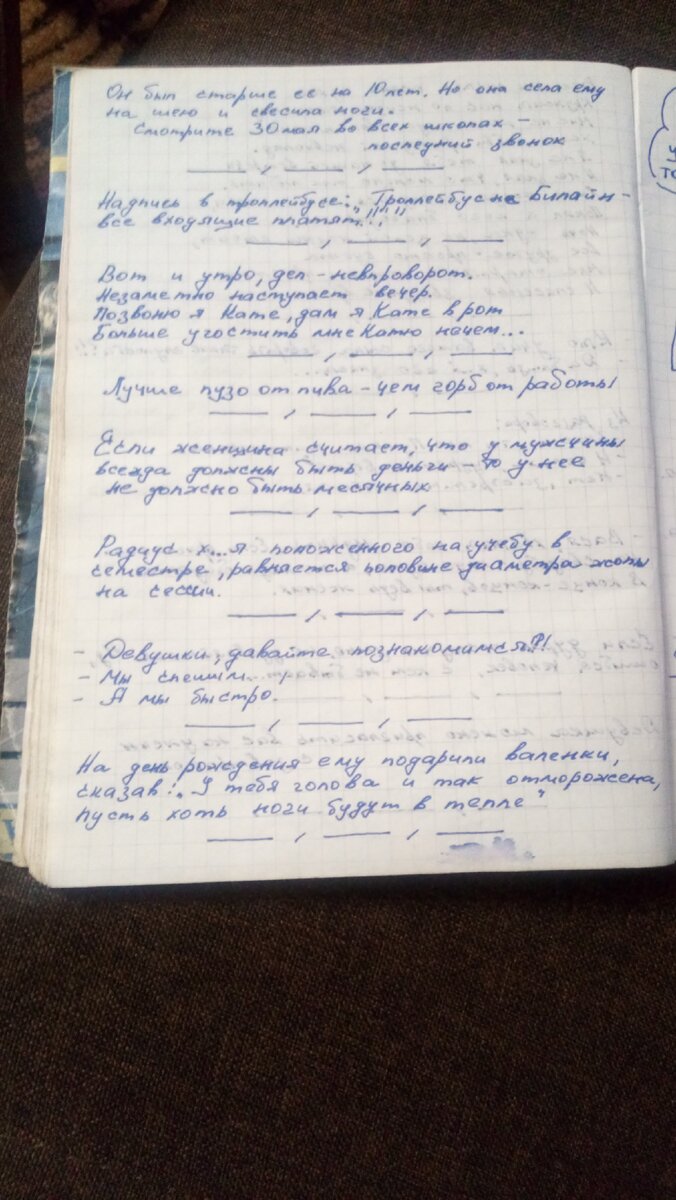 Он был старше ее на 10 лет. Но она села ему
на шею и свесила ноги.
Смотрите 30 мая во всех школах –
последний звонок
Надпись в троллейбусе: „Троллейбус не Билайн –
все входящие платят..."
Вот и утро, дел – невпроворот.
Незаметно наступает вечер.
Позвоню я Кате, дам я Кате в рот
Больше угостить мне Катю нечем...
Лучше пузо от пива – чем горб от работы
Если женщина считает, что у мужчины
всегда должны быть деньги то у нее
не должно быть месячных
Радиус х...я положенного на учебу в
семестре, равняется половине диаметра жопы
на сессии.
– Девушки, давайте познакомимся?!
– Мы спешим...
– А мы быстро.
На день рождения ему подарили валенки,
сказав: „У тебя голова и так отморожена,
пусть хоть ноги будут в тепле"